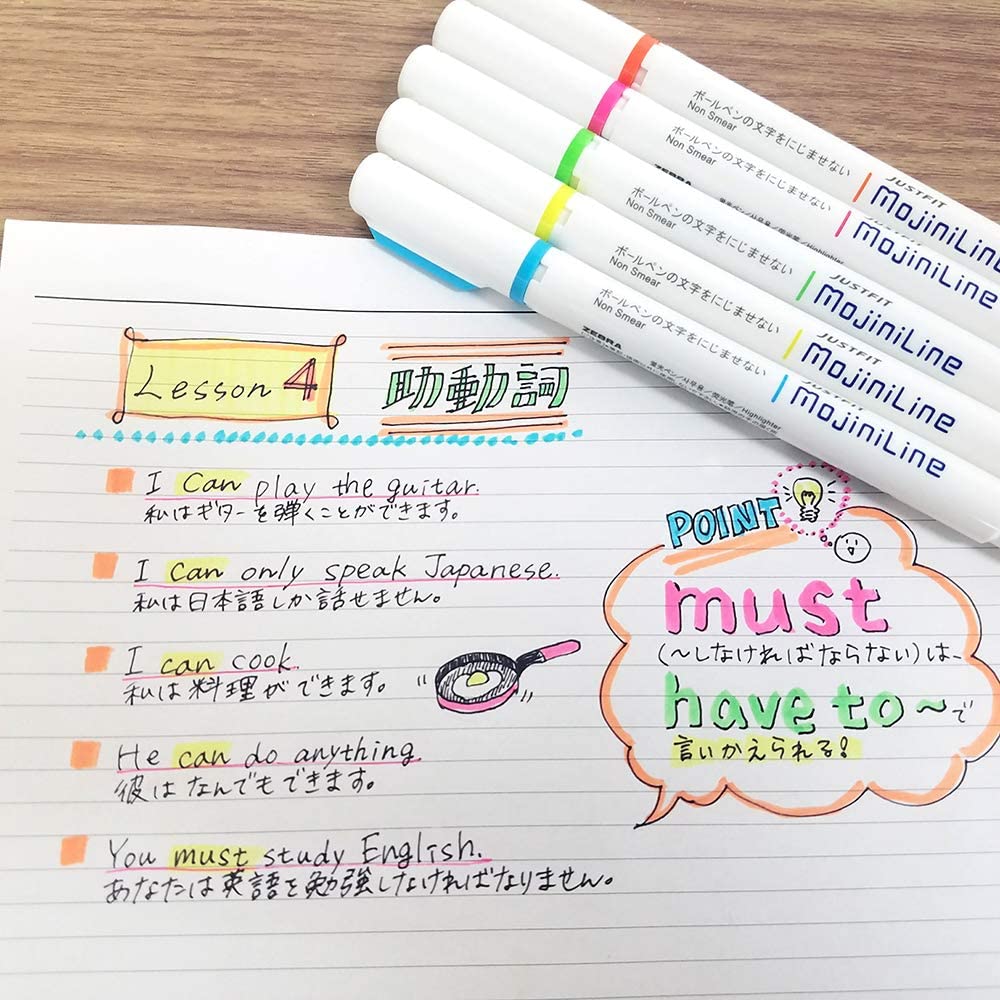 ボールペンの文字をにじませない
Non Smear
JUSTFIT
mojiniLine
ボールペンの文字をにじませない
Non Smear
ZEBRA
Highlighter
mojiniLine
ボールペンの文字をにじませない
Non Smear
JUSTFIT
mojiniLine
ボールペンの文字をにじませない
Non Smear
JUSTFIT
mojiniLine
ボールペンの文字をにじませない
Non Smear
ZEBRA
Highlighter
mojiniLine
Lesson 4 助動詞
I can play the guitar.
私はギターを弾くことができます。
I can only speak Japanese.
私は日本語しか話せません。
I can cook.
私は料理ができます。
He can do anything.
彼はなんでもできます。
You must study English.
あなたは英語を勉強しなければなりません。
POINT
must
(〜しなければならない)は、
have to 〜で
言いかえられる!